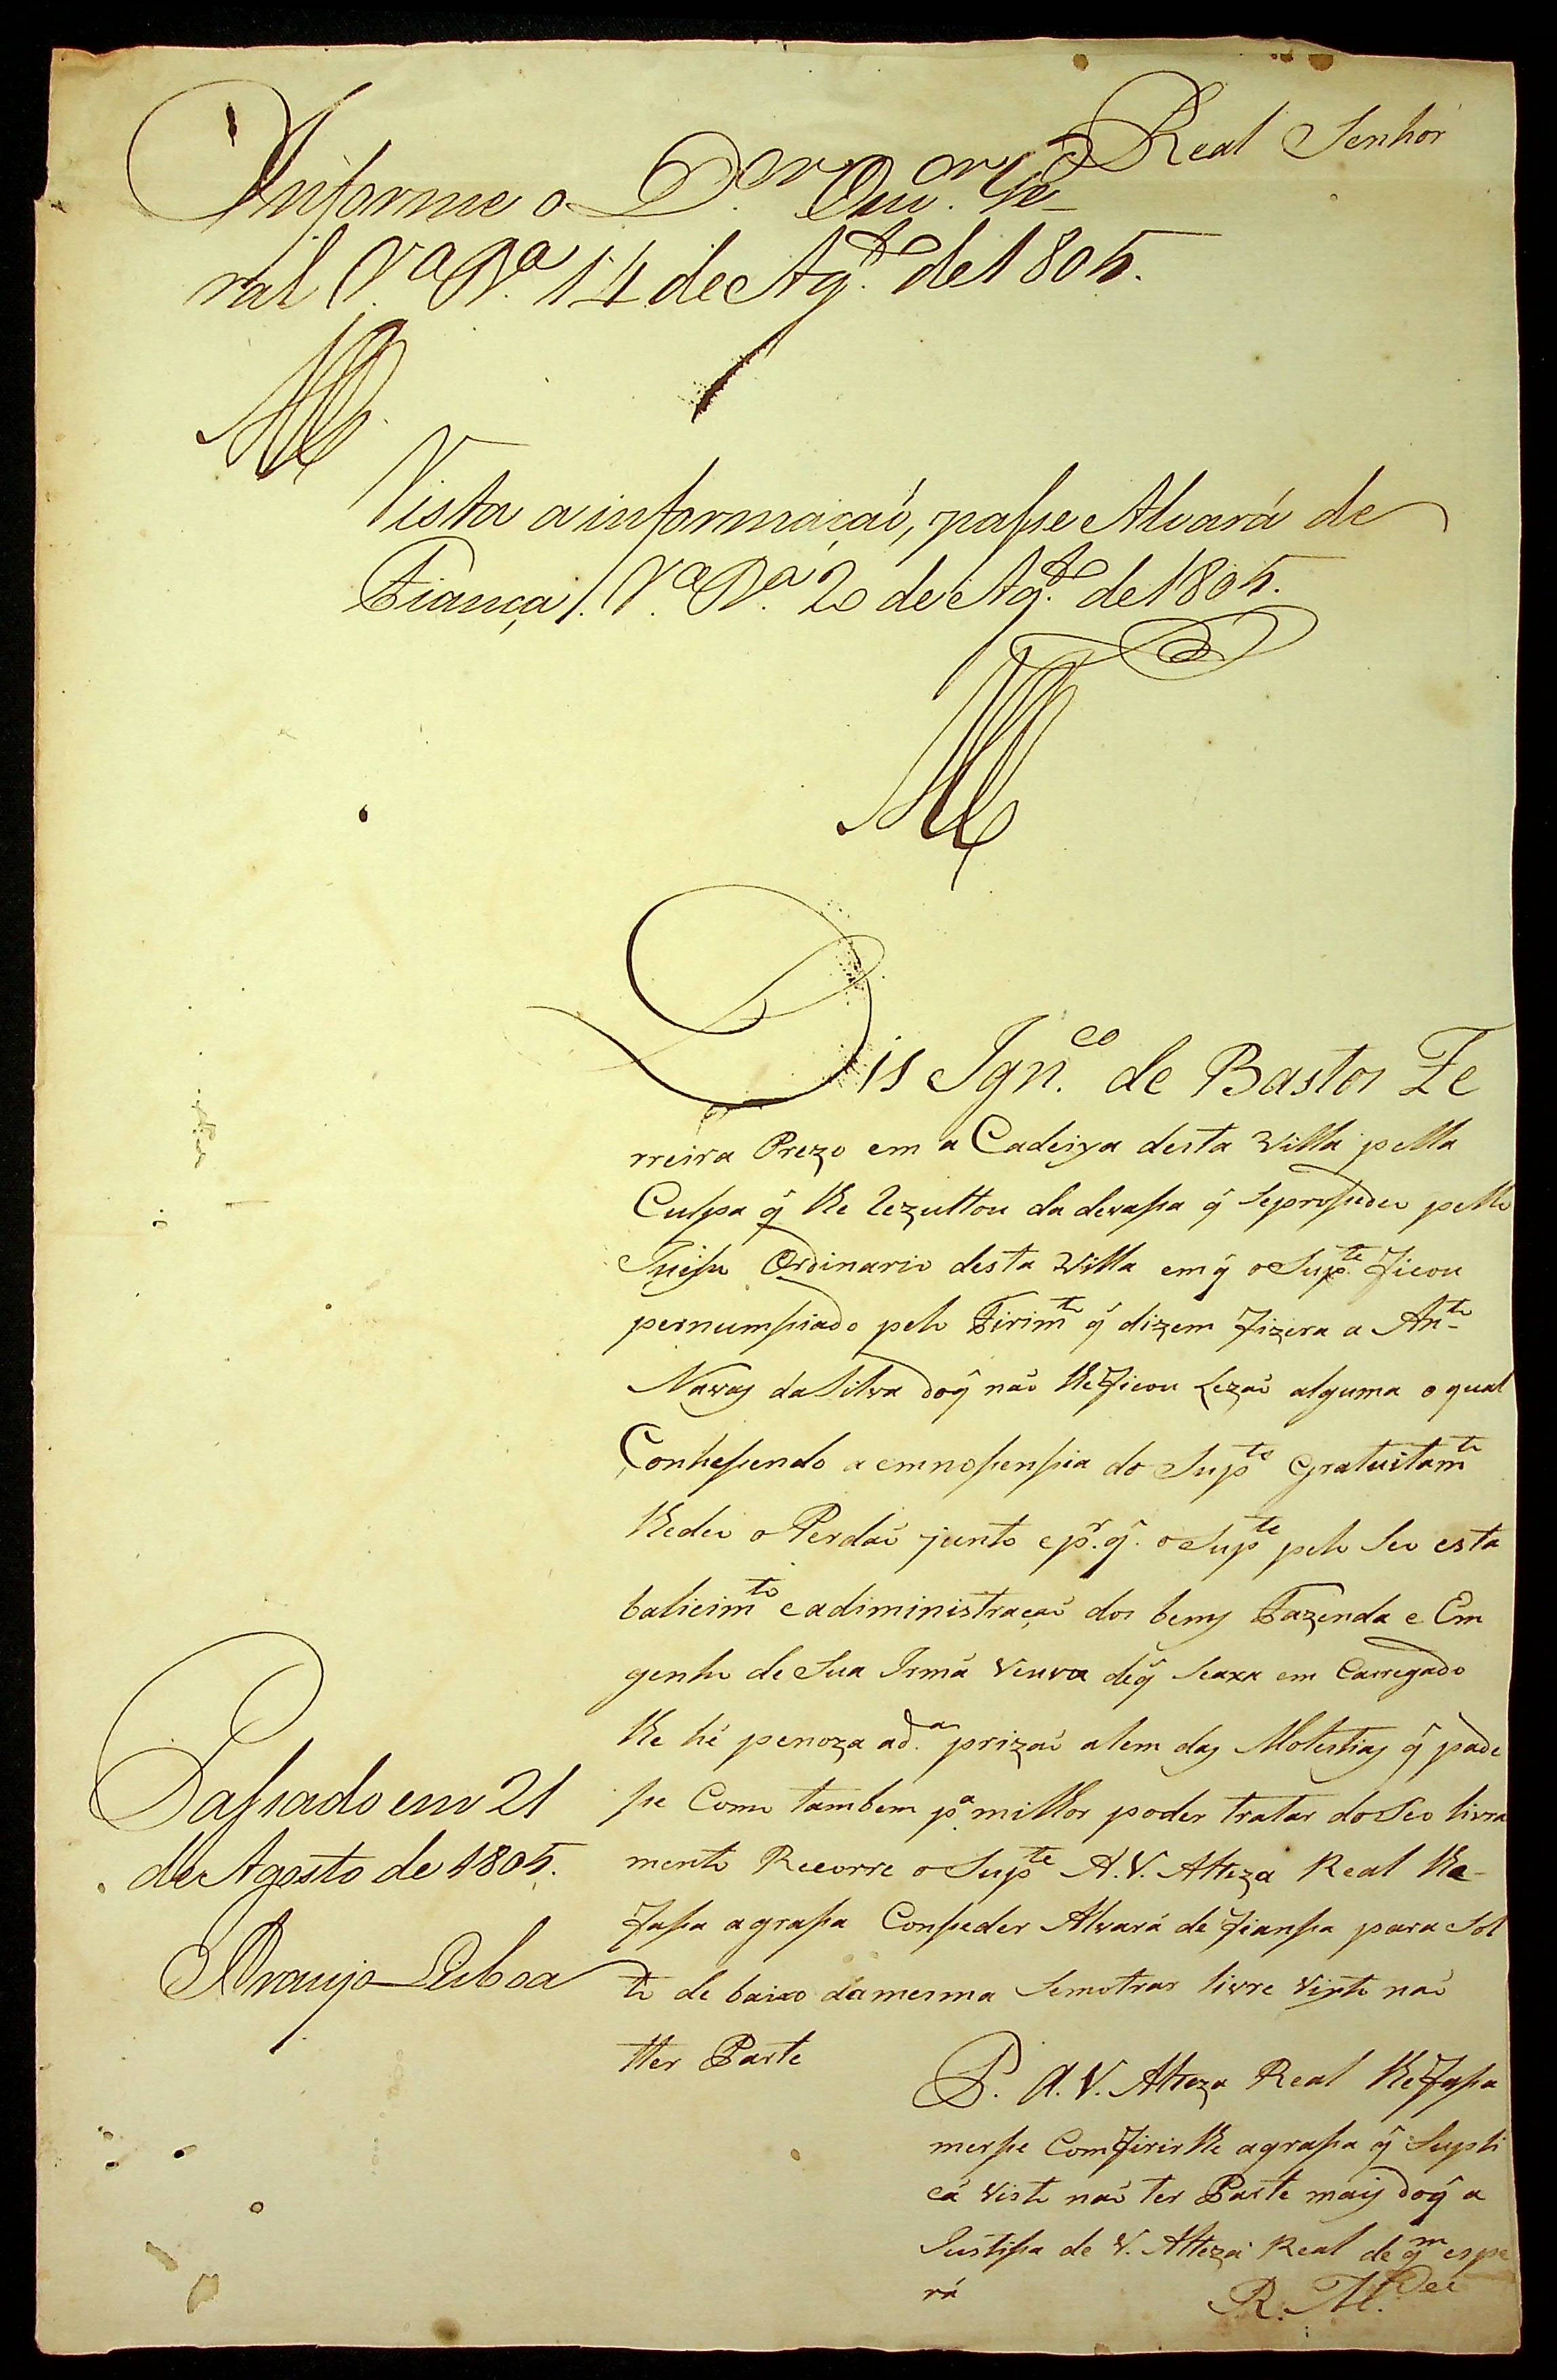 Real Senhor
Informe o D.or Ouv.or Ge-
ral V.a R.a 14 de Ag.to de 1805.
Vista a informação, passe Alvará de
Fiança. V.a R.a 20 de Ag.to de 1805.
Dis Ign.co de Bastos Fe
rreira Prezo em a Cadeiya desta Villa pella
Culpa q̃ lhe Rezultou da devassa q̃ seprossedeo pello
Juiso Ordinario desta Villa em q̃ o Sup.te Ficou
pernumssiado pelo Firim.to q̃ dizem Fizera a An.to
Navaς da Silva doq̃ não lhe Ficou Lezão alguma o qual
Conhessendo a emnossenssia do Sup.te Gratuitam.te
lhedeo o Perdão junto e p.r q̃. o Sup.te pelo Seo esta
balicim.to e adiministração dos bemς Fazenda e Em
genho de Sua Irmã Veuva deq̃ Seaxa em Carregado
lhe hé penoza ad.a prizão alem daς Molestiaς q̃ pade
sse Como tambem p.a milhor poder tratar do Seo livra
mento Recorre o Sup.te A. V. Alteza Real lhe-
Fassa a grassa Conseder Alvará de Fianssa para Sol
to de baixo damesma Semotrar livre Visto não
tter Parte
P. A. V. Alteza Real lheFassa
mersse ComFirirlhe agrassa q̃ Supli
cá Visto não ter Parte maiς doq̃ a
Justissa de V. Alteza Real de q̃m espe
rá
R. M.cee
Passado em 21
de Agosto de 1805.
Araujo Lisboa